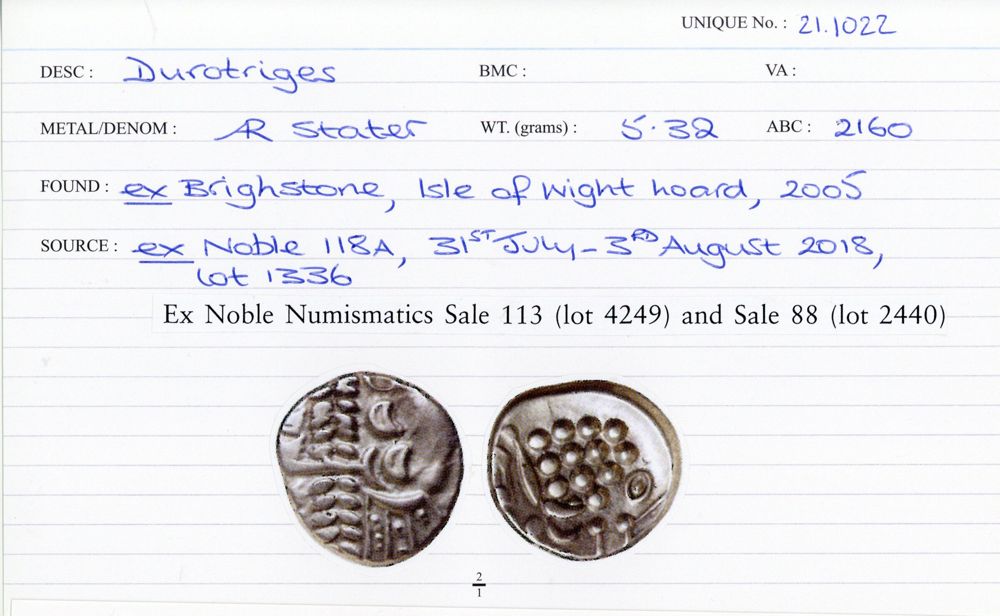 UNIQUE No. : 21.1022
DESC : Durotriges BMC : VA :
METAL/DENOM : AR Stater WT. (grams) : 5.32 ABC : 2160
FOUND : ex Brighstone, Isle of Wight hoard, 2005
SOURCE : ex Noble 118A, 31ST July - 3RD August 2018,
lot 1336
Ex Noble Numismatics Sale 113 (lot 4249) and Sale 88 (lot 2440)
2
1